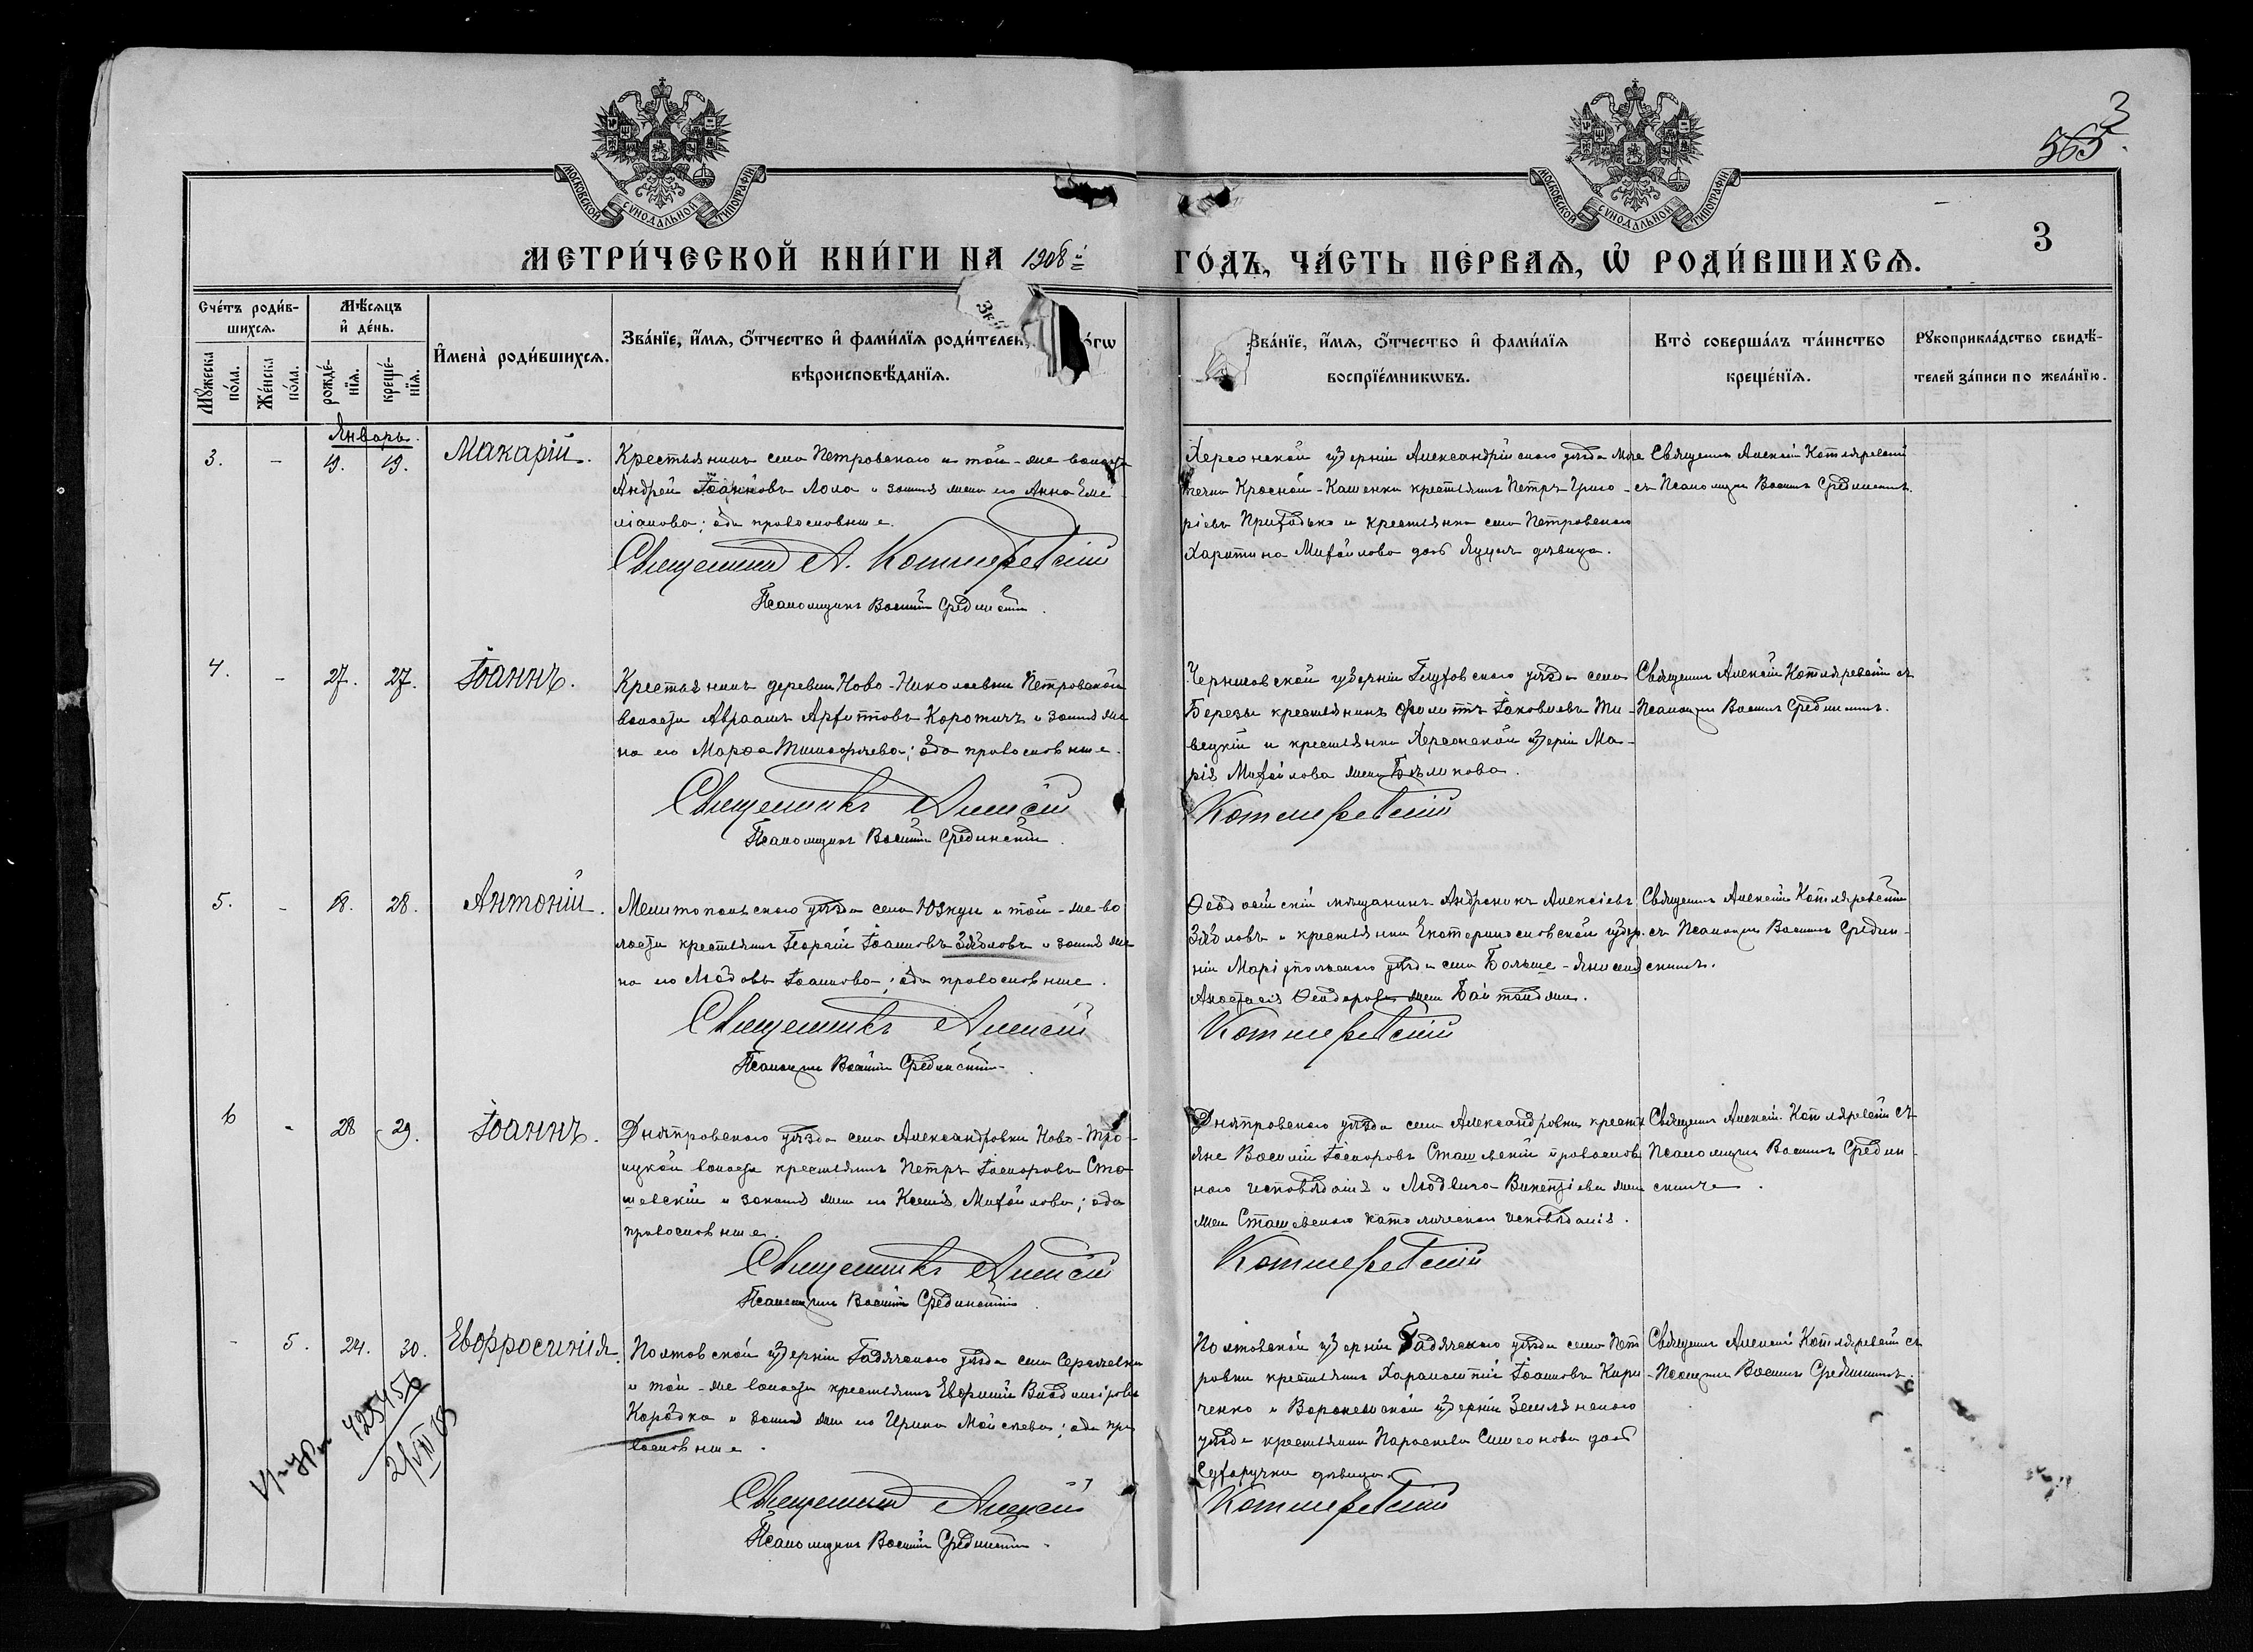 3
565.
МОСКОВСКОЙ СУНОДАЛЬНОЙ ТИПОГРАФІИ
МОСКОВСКОЙ СУНОДАЛЬНОЙ ТИПОГРАФІИ
3
МЕТРИ́ЧЕСКОЙ КНИ́ГИ НА 1908й
ГО́ДЪ, ЧА́СТЬ ПЕ́РВАѦ, Ѡ҆ РОДИ́ВШИХСѦ.
Сче́тъ роди́в-
шихсѧ.
Мꙋ́жеска по́ла.
Же́нска по́ла.
Мѣ́сѧцъ
и҆ де́нь.
рожде́-
нїѧ.
креще́-
нїѧ.
И҆мена̀ роди́вшихсѧ.
Зва́нїе, и҆́мѧ, ѻ҆́тчество и҆ фами́лїѧ роди́телей,
вѣроисповѣ́данїѧ.
Зва́нїе, и҆́мѧ, ѻ҆́тчество и҆ фами́лїѧ
воспрїе́мникѡвъ.
Кто̀ соверша́лъ та́инство
креще́нїѧ.
Рꙋкоприкла́дство свидѣ́-
телей за́писи по жела́нїю.
Январь.
3. - 19. 19. Макарій.
Крестьянинъ села Петровскаго и той-же волости
Андрей Іоанновъ Лола и законная жена его Анна Еме-
ліанова; оба православные.
Священникъ А. Котляревскій
Псаломщикъ Василій Срединскій.
Херсонской губерніи Александрійскаго уѣзда мѣс-
течка Красной-Каменки крестьянинъ Петръ Григо-
ріевъ Приходько и крестьянка села Петровскаго
Харитина Михайлова дочь Яцунъ дѣвица.
Священникъ Алексій Котляревскій
съ Псаломщикомъ Василіемъ Срединскимъ.
4. - 27. 27. Іоаннъ.
Крестьянинъ деревни Ново-Николаевки Петровской
волости Авраамъ Архиповъ Коротичъ и законная же-
на его Марфа Тимофеева; оба православные.
Священникъ Алексій
Псаломщикъ Василій Срединскій.
Черниговской губерніи Глуховскаго уѣзда села
Березы крестьянинъ Іаковлевъ
и крестьянка Херсонской губерніи Ма-
рія Михайлова жена Бѣликова.
Котляревскій
Священникъ Алексій Котляревскій съ
Псаломщикомъ Василіемъ Срединскимъ.
5. - 18. 28. Антоній.
Мелитопольскаго уѣзда села Юзкуи и той-же во-
лости крестьянинъ Георгій Іоанновъ Зябловъ и законная же-
на его Любовь Іоаннова; оба православные.
Священникъ Алексій
Псаломщикъ Василій Срединскій
Ѳеодосійскій мѣщанинъ Андроникъ Алексіевъ
Зябловъ и крестьянка Екатеринославской губер-
ніи Маріупольскаго уѣзда села Больше-Янисоля
Анастасія Ѳеодорова жена
Котляревскій
Священникъ Алексій Котляревскій
съ Псаломщикомъ Василіемъ Средин-
скимъ.
6 - 28 29. Іоаннъ.
Днѣпровскаго уѣзда села Александровки Ново-Тро-
ицкой волости крестьянинъ Петръ Іосифовъ Ста-
шевскій и законная жена его Ксенія Михайлова; оба
православные.
Священникъ Алексій
Псаломщикъ Василій Срединскій.
Днѣпровскаго уѣзда села Александровки кресть-
яне Василій Іосифовъ Сташевскій православ-
наго исповѣданія и Людвига Викентіева
жена Сташевскаго католическаго исповѣданія.
Котляревскій
Священникъ Алексій Котляревскій съ
Псаломщикомъ Василіемъ Средин-
скимъ.
- 5. 24. 30. Евфросинія.
Полтавской губерніи Гадячскаго уѣзда села Сергіевки
и той-же волости крестьянинъ Евфимій Владиміровъ
Коробка и законная жена его Ирина Мойсеева; оба пра-
вославные.
Священникъ Алексій
Псаломщикъ Василій Срединскій.
Полтавской губерніи Гадячскаго уѣзда села Пет-
ровки крестьянинъ Харалампій Іоанновъ Кири-
ченко и Воронежской губерніи Землянскаго
уѣзда крестьянка Параскева Симеонова дочь
Сухоручкина дѣвица.
Котляревскій
Священникъ Алексій Котляревскій съ
Псаломщикомъ Василіемъ Срединскимъ.
425456